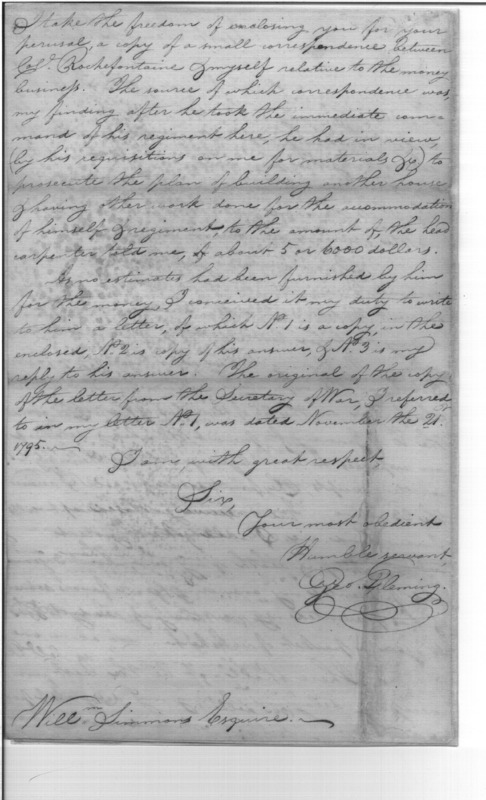 I take the freedom of enclosing you for your
perusal a copy of a small correspondence between
Col.º Rochefontaine & myself relative to the money
business. The source of which correspondence was,
my finding after he took the immediate com-
mand of his regiment here, he had in view,
(by his requisitions on me for materials &c) to
prosecute the plan of building another house
& having other work done for the accommodation
of himself & regiment, to the amount of the head
carpenter told me, of about 5 or 6000 dollars.
As no estimates had been furnished by him
for the money, I conceived it my duty to write
to him a letter, of which Nº 1 is a copy, in the
enclosed, Nº 2 is copy of his answer, & Nº 3 is my
reply to his answer. The original of the copy
of the letter from the Secretary of War, I referred
to in my letter Nº 1, was dated November the 21st
1795.
I am, with great respect,
Sir,
Your most obedient
Humble servant,
Geo. Fleming.
Willm Simmons Esquire.